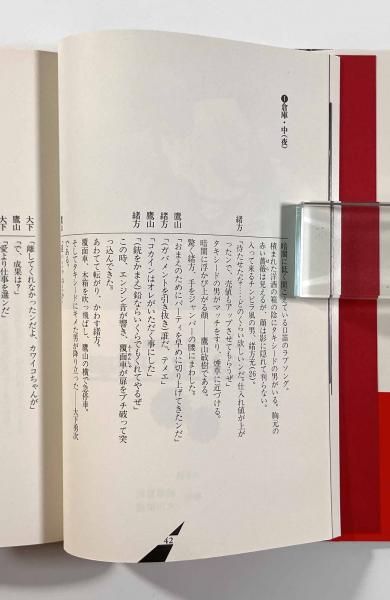 ❶倉庫・中(夜)
暗闇に低く聞こえている日語のラブソング。
積まれた洋酒の箱の陰にタキシードの男がいる。胸元の
赤い薔薇は見えるが、顔は影に隠れて判らない。
入って来るチンピラ風の男、緒方元(26)。
緒方
「待たせたナ…どのくらい欲しいンだ。仕入れ値が上が
ったンで、売値もアップさせてもらうぜ」
タキシードの男がマッチをすり、煙草に近づける。
暗闇に浮かび上がる――鷹山敏樹である。
驚く緒方、手をジャンパーの腰にまわした。
鷹山
「おまえのためにパーティを早めに切り上げてきたンだ」
緒方
「(ガバメントを引き抜き)誰だ、テメエ」
鷹山
「コカインはオレがいただく事にした」
緒方
「(銃をかまえ)鉛ならいくらでもくれてやるぜ」
この時、エンジン音が響き、覆面車が扉をブチ破って突
っ込んできた。
あわてて転がり、かわす緒方。
覆面車、木箱を吹っ飛ばし、鷹山の横で急停車。
そしてタキシードにキメた男が降り立った――大下勇次
である。
鷹山
大下
「離してくれなかったンだよ、カワイコちゃんが」
鷹山
「で、成果は?」
大下
「愛より仕事を選ンだ」
42